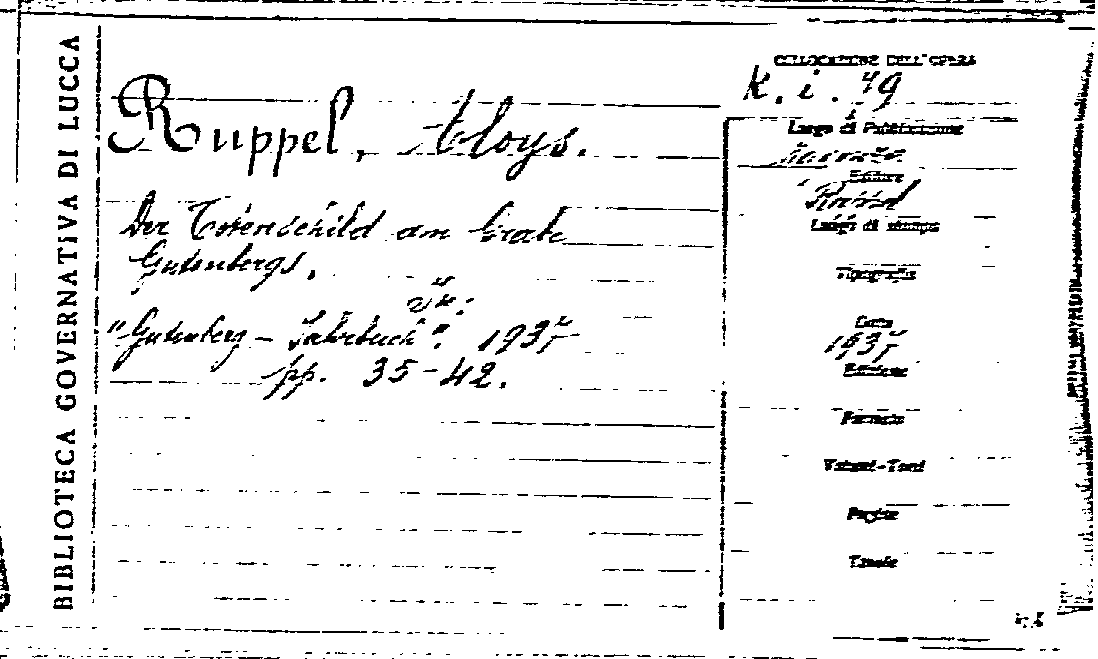 BIBLIOTECA GOVERNATIVA DI LUCCA
COLLOCAZIONE DELL'OPERA
K. i. 49
Ruppel, Aloys.
Der Totenschild am Grabe
Gutenbergs.
In:
"Gutenberg - Jahrbuch". 1937
pp. 35-42.
Luogo di Pubblicazione
Editore
Luogo di stampa
Tipografia
Data
1937
Edizione
Formato
Volumi-Tomi
Pagine
Tavole